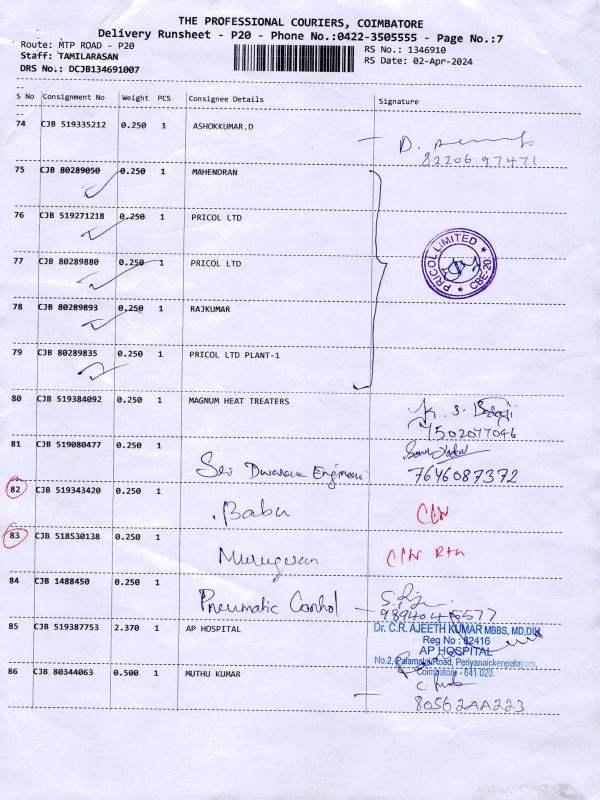 THE PROFESSIONAL COURIERS, COIMBATORE
Delivery Runsheet - P20 - Phone No.:0422-3505555 - Page No.:7
Route: MTP ROAD - P20
RS No.: 1346910
Staff: TAMILARASAN
RS Date: 02-Apr-2024
DRS No.: DCJB134691007
S No Consignment No Weight PCS Consignee Details Signature
74 CJB 519335212 0.250 1 ASHOKKUMAR.D
D.
8220697471
75 CJB 80289050 0.250 1 MAHENDRAN
76 CJB 519271218 0.250 1 PRICOL LTD
77 CJB 80289880 0.250 1 PRICOL LTD
PRICOL LIMITED ★ CBE-20 ★
78 CJB 80289893 0.250 1 RAJKUMAR
79 CJB 80289835 0.250 1 PRICOL LTD PLANT-1
80 CJB 519384092 0.250 1 MAGNUM HEAT TREATERS
7502077046
81 CJB 519080477 0.250 1 Sri Dwaraka Engineers
7646087372
82 CJB 519343420 0.250 1 Babu
83 CJB 518530138 0.250 1 Murugesan
84 CJB 1488450 0.250 1 Pneumatic Conhol
85 CJB 519387753 2.370 1 AP HOSPITAL
Dr. C.R. AJEETH KUMAR MBBS, MD,DM
Reg No : 82416
AP HOSPITAL
No.2, Palamalai Road, Periyanaickenpalayam,
Coimbatore - 641 020.
86 CJB 80344063 0.500 1 MUTHU KUMAR
80562AA223